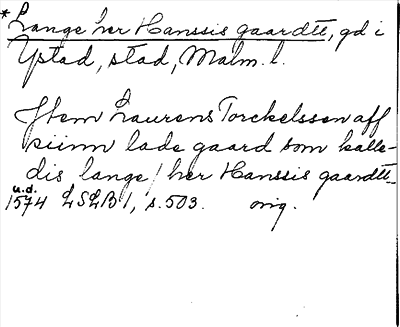 * Lange her Hanssis gaardtt, gd i
Ystad, stad, Malm. l.
Jtem Laurens Torckelssøn aff
siinn lade gaard som kalle-
dis lange! her Hanssis gaardtt-
u.d.
1574 LSLB 1, s. 503. orig.